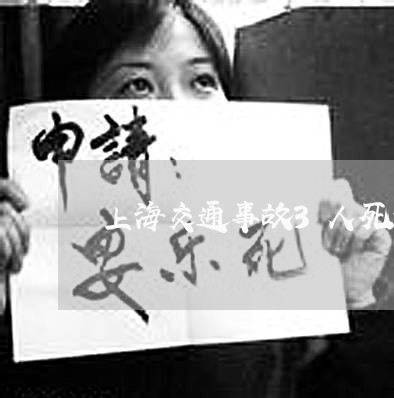 申請:
上海交通事故3 人死
安乐死